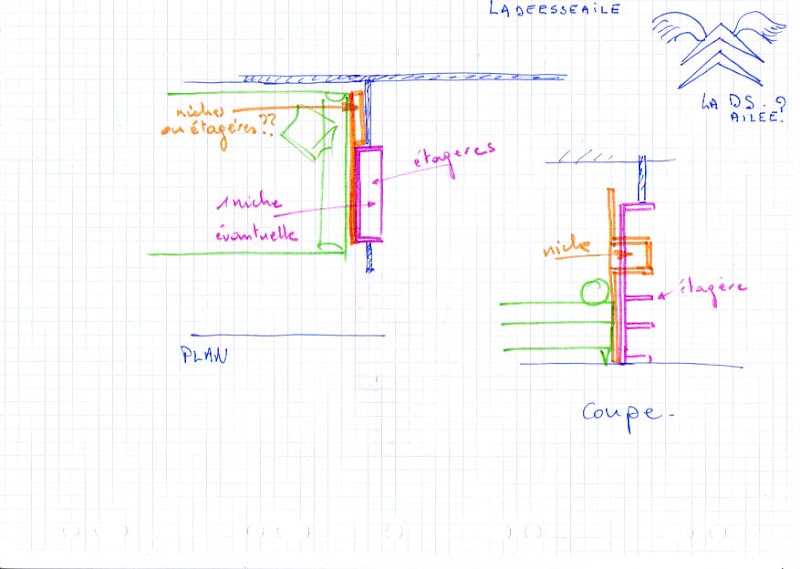 LADEESSEAILE
LA DS. ?
AILEE.
niches
ou étagères??
étagères
1 niche
évantuelle
niche
étagère
PLAN
Coupe-